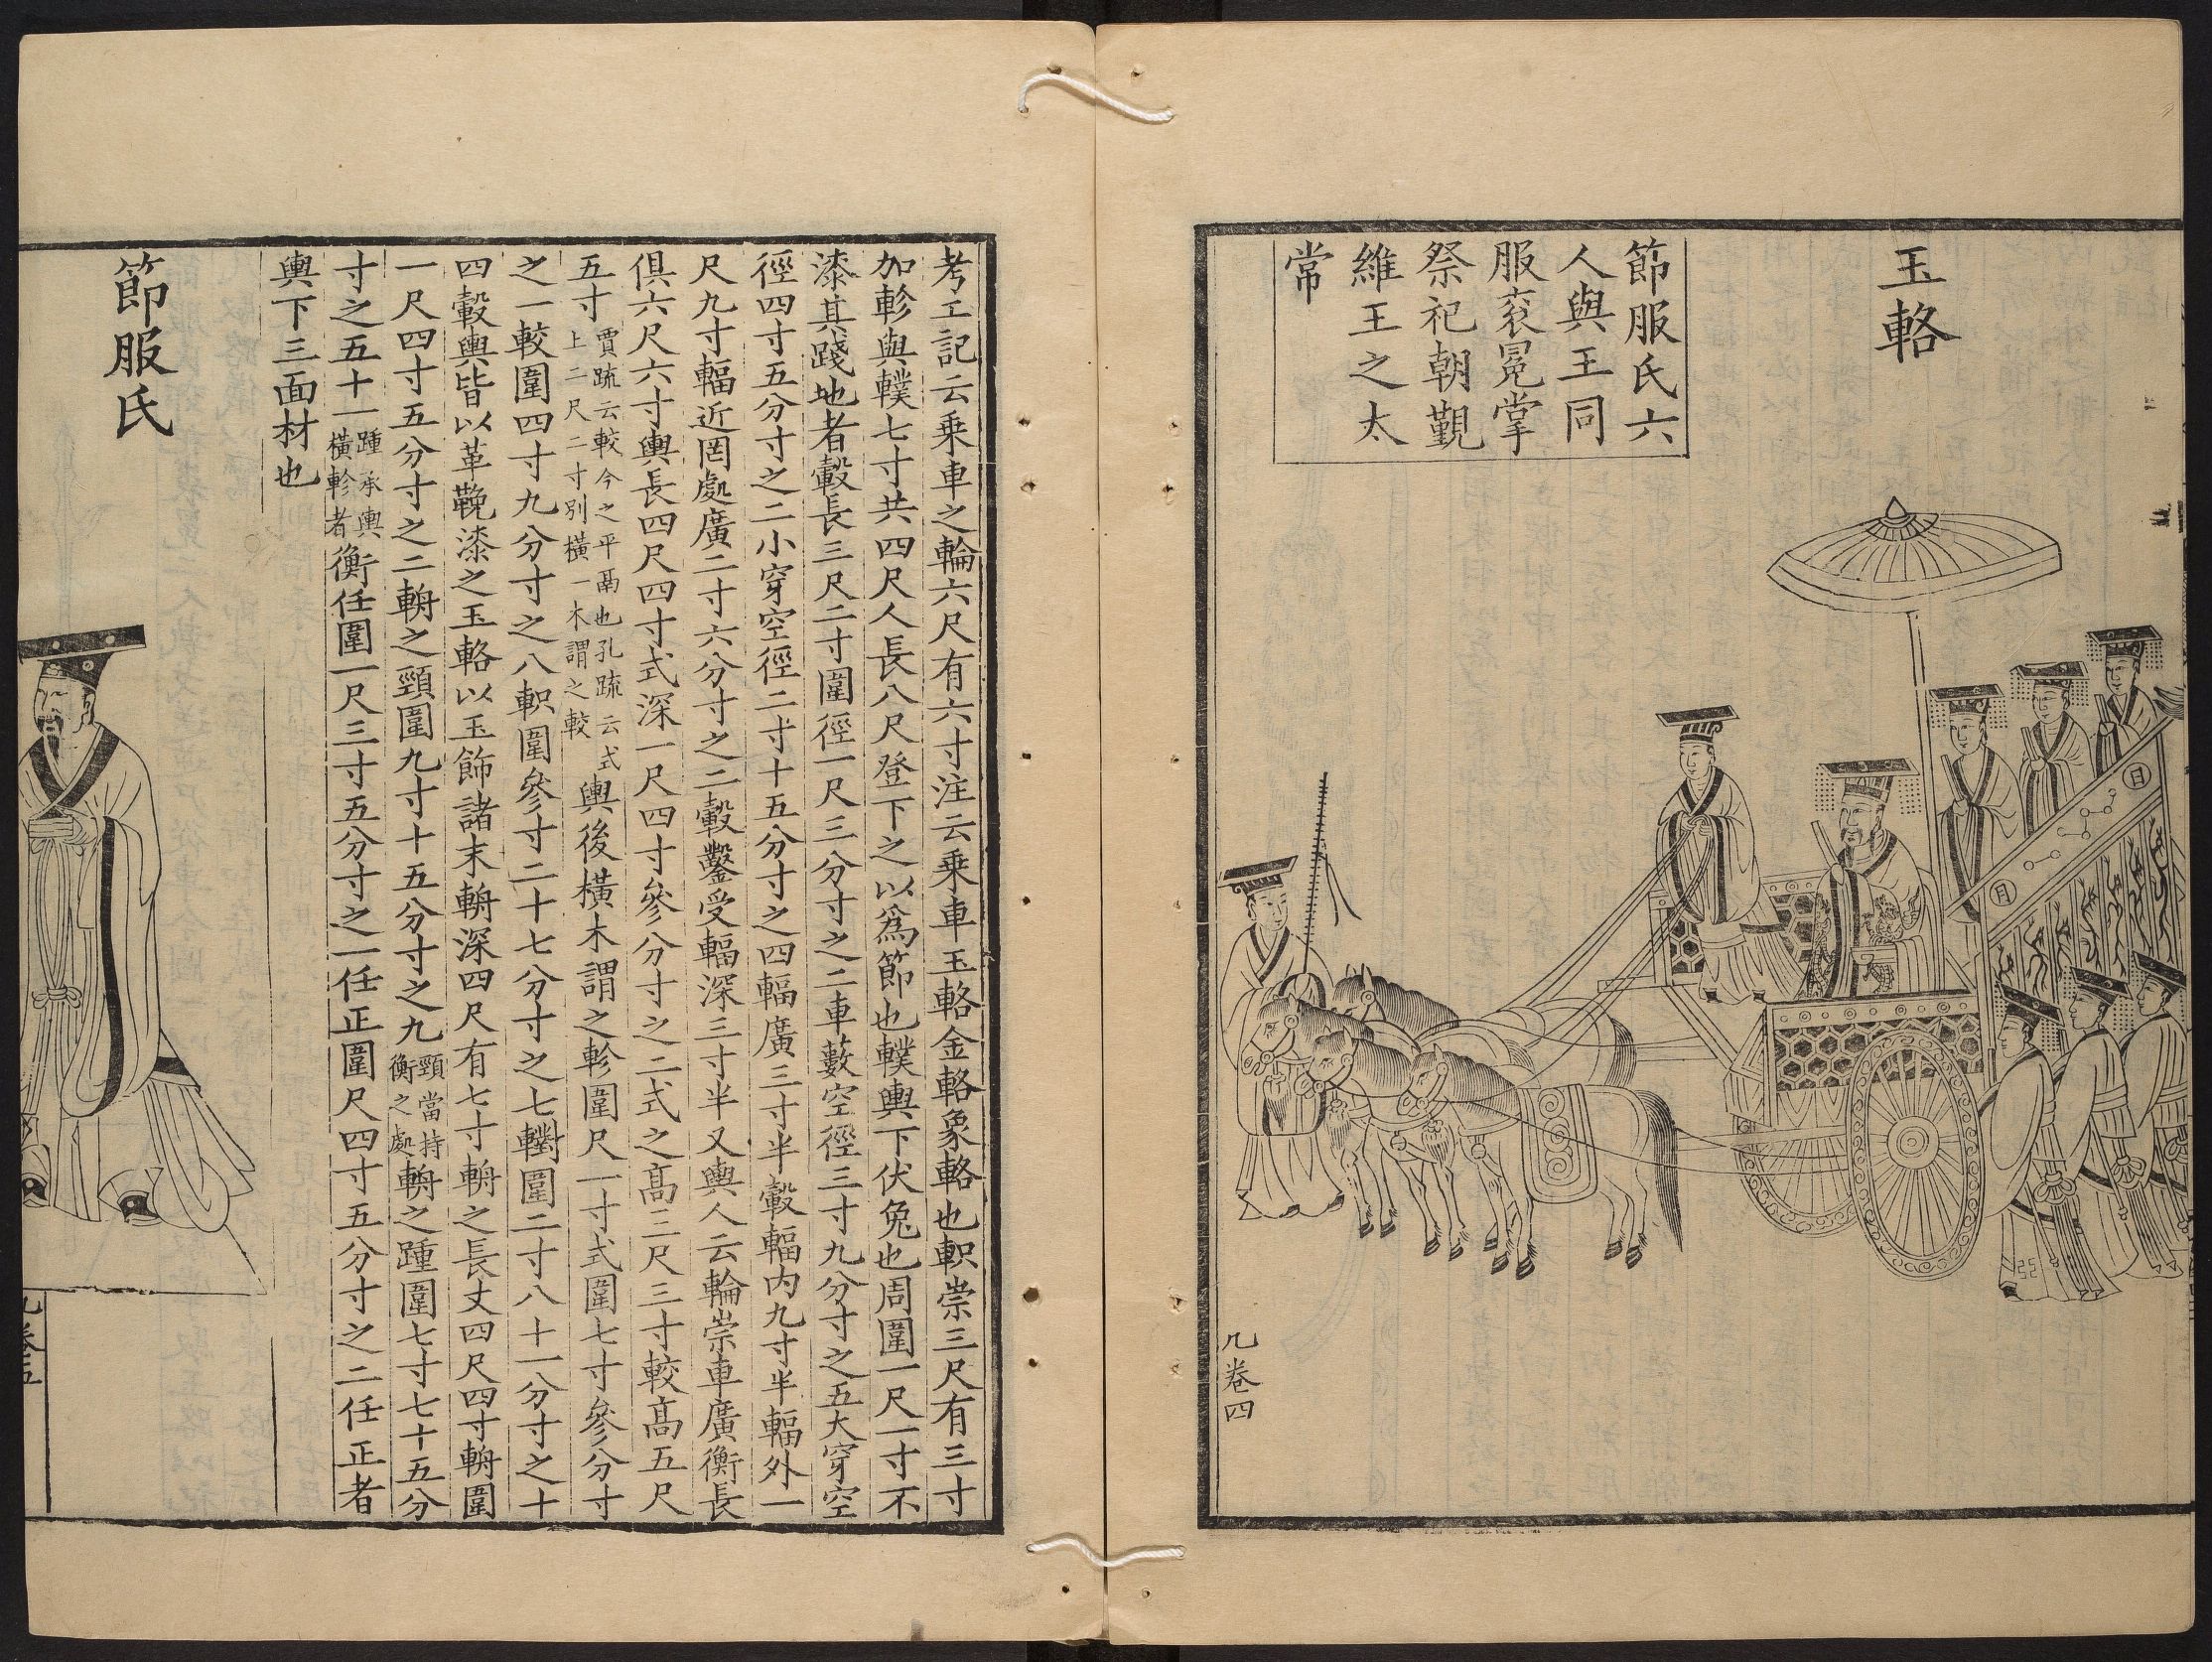 玉輅
節服氏六
人與王同
服衮冕掌
祭祀朝覲
維王之太
常
日
月
凡卷四
考工記云乘車之輪六尺有六寸注云乘車玉輅金輅象輅也軹崇三尺有三寸
加軫與轐七寸共四尺人長八尺登下之以爲節也轐輿下伏兔也周圍一尺一寸不
漆其踐地者轂長三尺二寸圍徑一尺三分寸之二車藪空徑三寸九分寸之五大穿空
徑四寸五分寸之二小穿空徑二寸十五分寸之四輻廣三寸半轂輻內九寸半輻外一
尺九寸輻近罔處廣二寸六分寸之二轂鑿受輻深三寸半又輿人云輪崇車廣衡長
俱六尺六寸輿長四尺四寸式深一尺四寸參分寸之二式之高三尺三寸較高五尺
五寸賈疏云較今之平鬲也孔疏云式上二尺二寸別橫一木謂之較輿後橫木謂之軫圍尺一寸式圍七寸參分寸
之一較圍四寸九分寸之八軹圍參寸二十七分寸之七轛圍二寸八十一分寸之十
四轂輿皆以革鞔漆之玉輅以玉飾諸末輈深四尺有七寸輈之長丈四尺四寸輈圍
一尺四寸五分寸之二輈之頸圍九寸十五分寸之九頸當持衡之處輈之踵圍七寸七十五分
寸之五十一踵承輿橫軫者衡任圍一尺三寸五分寸之一任正圍尺四寸五分寸之二任正者
輿下三面材也
節服氏